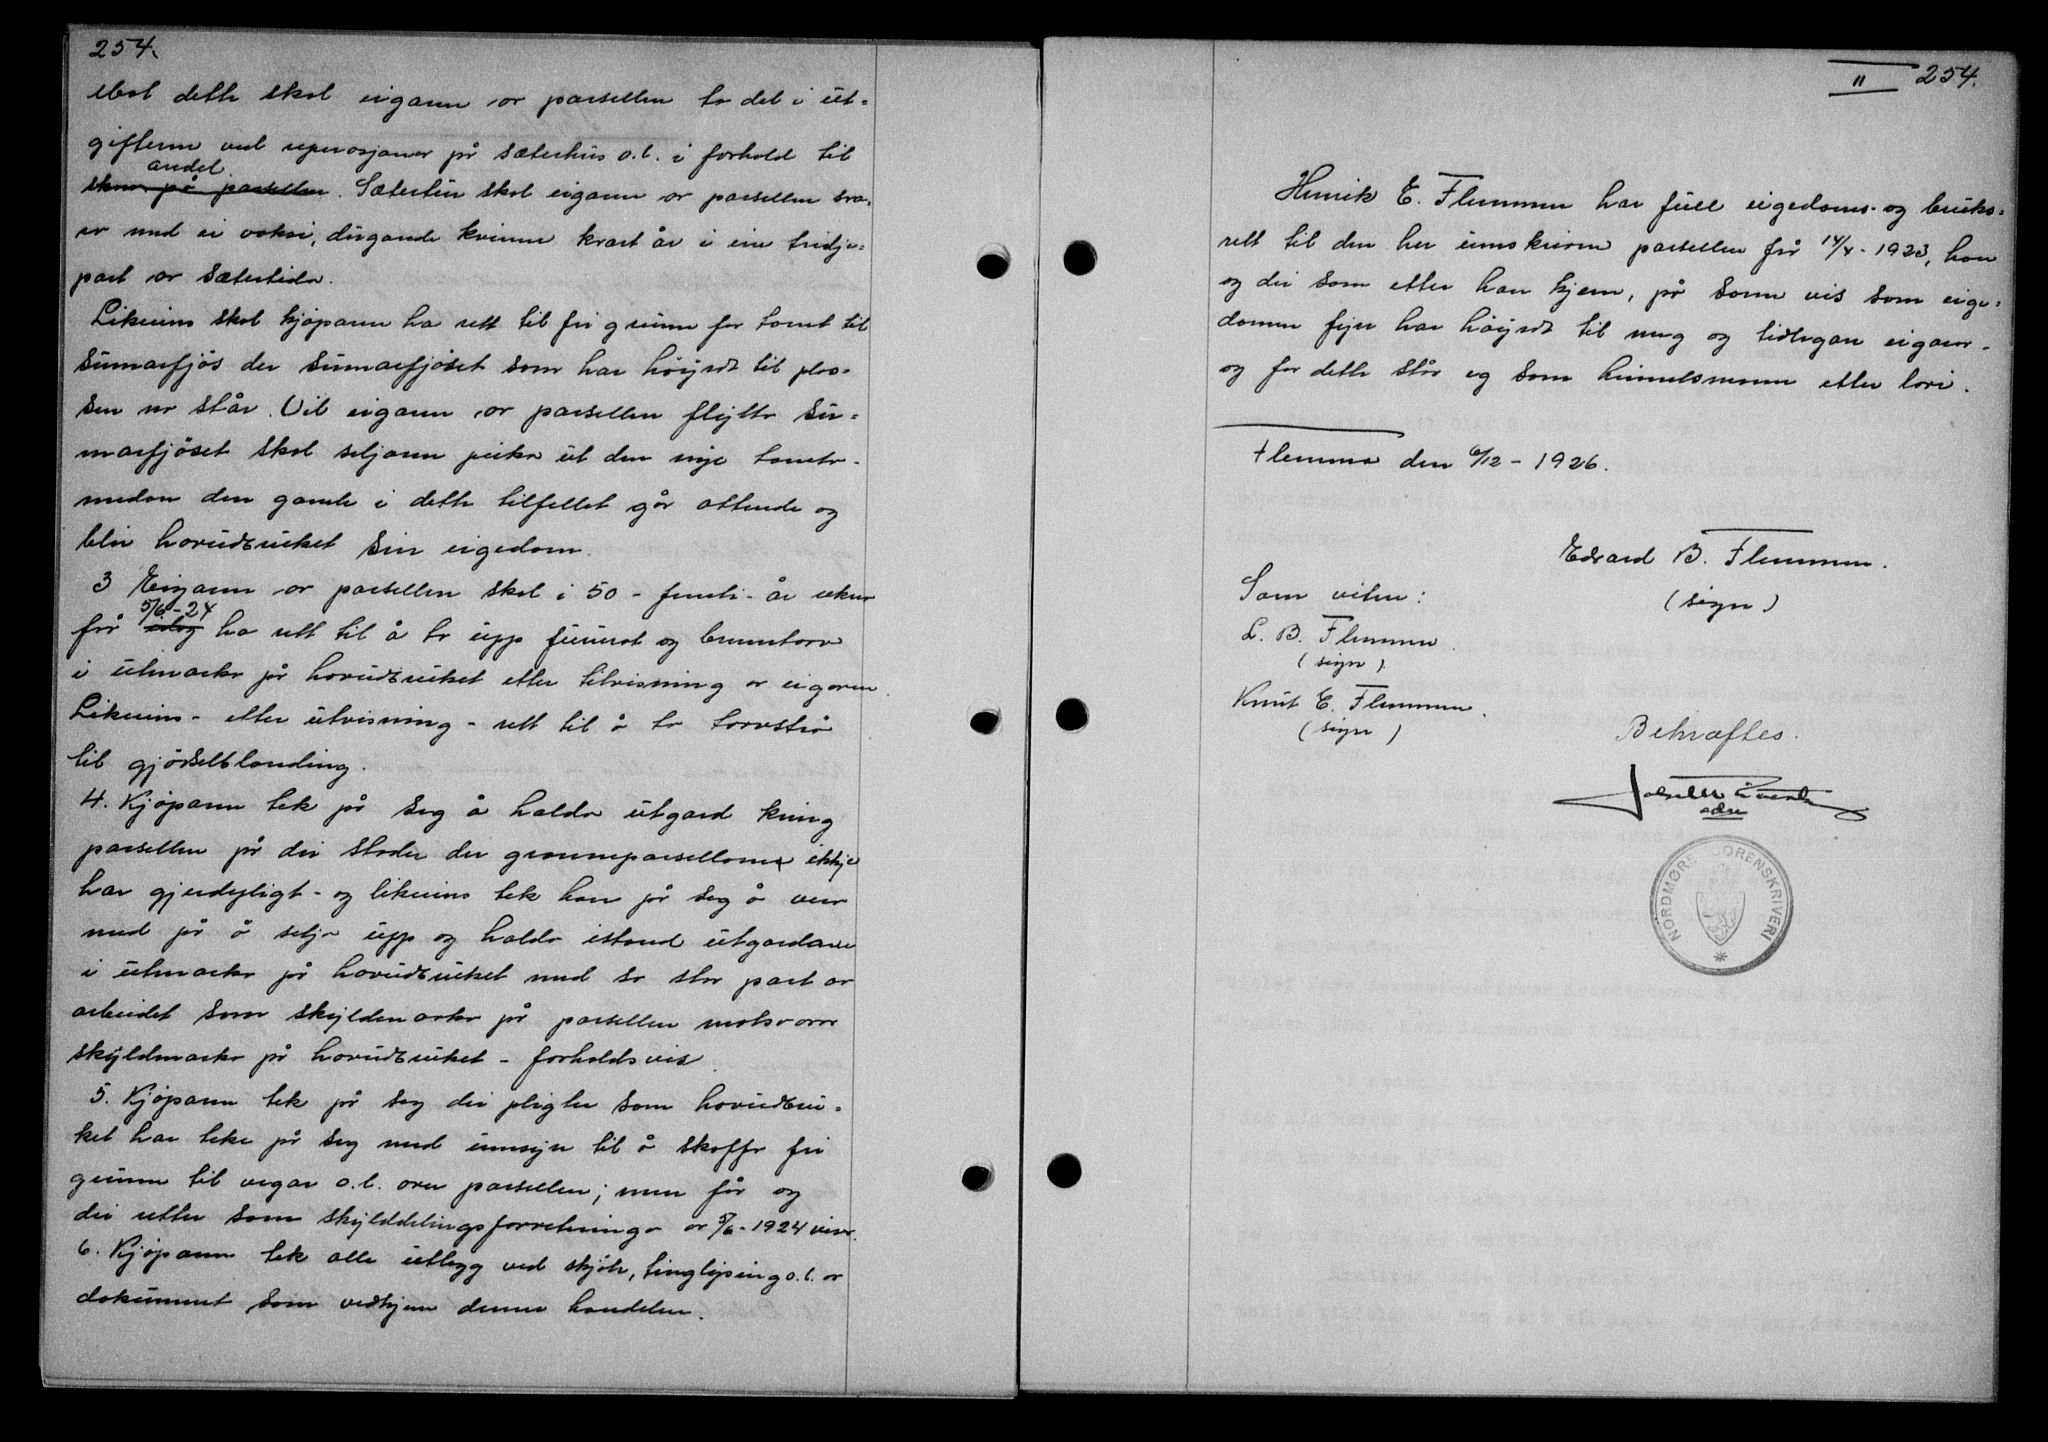 254.
skal eigaren av parsellen ta del i ut-
gifterne ved reparasjoner på sæterhus o.l. i forhold til
andel
skow på parsellen. Sætertur skal eigaren av parsellen sva-
ra med ei voksi, dugande kvinne kvart år i ein tridje-
part av sætertida.
Likeeins skal kjøparen ha rett til fri grunn for tomt til
sumarfjøs der sumarfjøset som har høyrdt til plas-
sen no står. Vil eigaren av parsellen flytta su-
marfjøset skal seljaren peika ut den nye tomta -
medan den gamle i dette tilfellet går attende og
blir hovudbruket sin eigedom.
3 Eigaren av parsellen skal i 50 - femti - år rekna
5/6-24
frå idag ha rett til å ta upp fururot og brenntorv
i utmarka på hovudbruket etter tilvisning av eigaren.
Likeeins - etter utvisning - rett til å ta torvstrø
til gjødselblanding.
4. Kjøparen tek på seg å halda utgard kring
parsellen på dei stader der granneparsellane ikkje
har gjerdepligt - og likeeins tek han på seg å vera
med på å setja upp og halda istand utgardane
i utmarka på hovudbruket med so stor part av
arbeidet som skyldmarka på parsellen motsvarar
skyldmarka på hovudbruket - forholdsvis.
5. Kjøparen tek på seg dei pligter som hovudbru-
ket har teke på seg med umsyn til å skaffa fri
grunn til vegar o.l. over parsellen; men får og
dei retter som skylddelingsforretninga av 5/6-1924 viser.
6. Kjøparen tek alle utlegg ved skjøte, tinglysing o.l. av
dokument som vedkjem denne handelen.
11 254.
Henrik E. Flemmen har full eigedoms- og bruks-
rett til den her umskrivne parsellen frå 14/4-1923, han
og dei som etter han kjem, på same vis som eige-
domen fyrr har høyrdt til meg og tidlegare eigarar -
og for dette står eg som heimelsmann etter lovi.
Flemma den 6/12-1926.
Edvard B. Flemmen.
(sign)
Som vitne:
L. B. Flemmen.
(sign)
Knut E. Flemmen.
(sign)
Bekræftes.
NORDMØRE SORENSKRIVERI